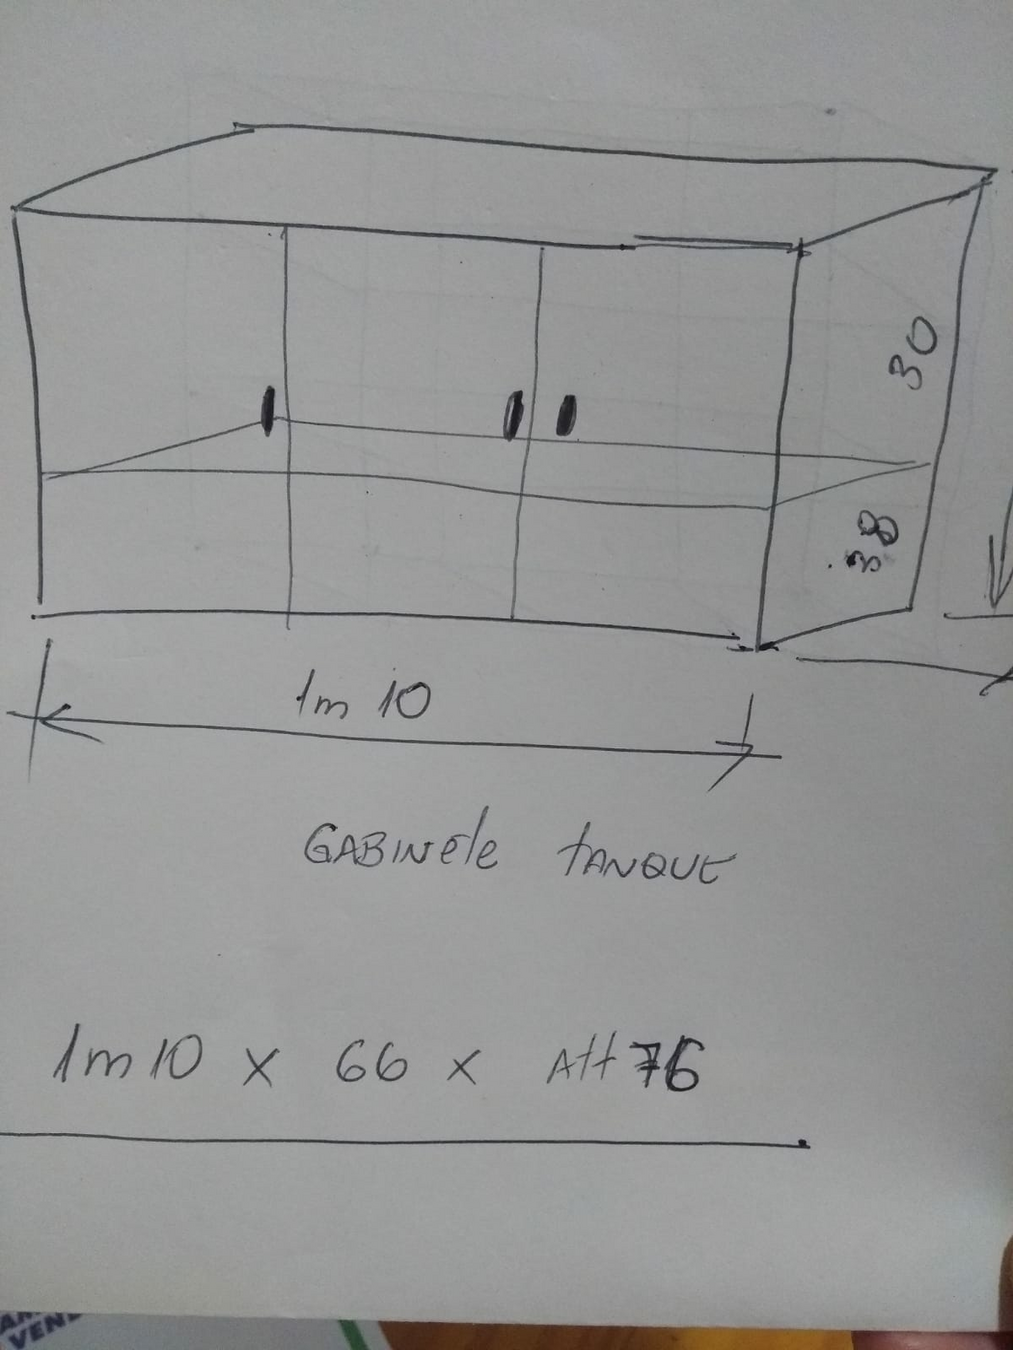 30
38
1m 10
GABINEte tANQUE
1m10 x 66 x Alt 76
VEN